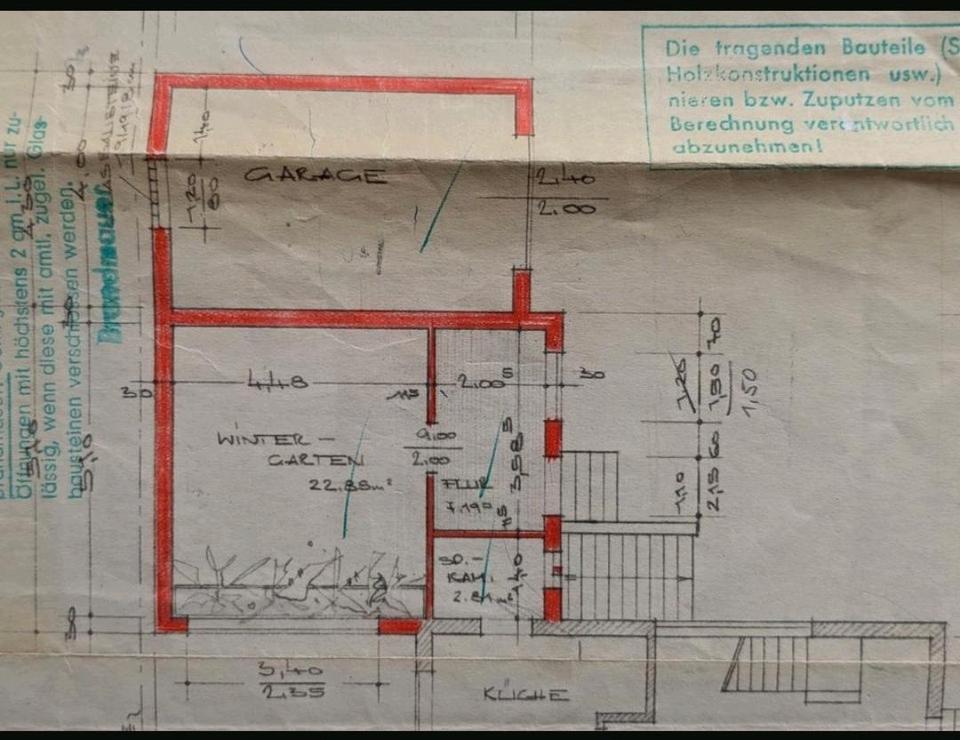 Die tragenden Bauteile (S
Holzkonstruktionen usw.)
nieren bzw. Zuputzen vom
Berechnung verantwortlich
abzunehmen!
Öffnungen mit höchstens 2 qm i.L. nur zu-
lässig, wenn diese mit amtl. zugel. Glas-
bausteinen verschlossen werden.
Brandmauer
30
4.00
GARAGE
1.40
1.20
80
2.40
2.00
30
4.48
11⁵
2.00⁵
30
WINTER-
GARTEN
22.85m²
9.00
2.00
FLUR
7.19
3.58⁵
11⁵
SP.-
KAM.
2.81m²
1.40
70
1.26
1.30
1,50
60
1.10
2.15
5.10
30
3.40
2.35
KÜCHE